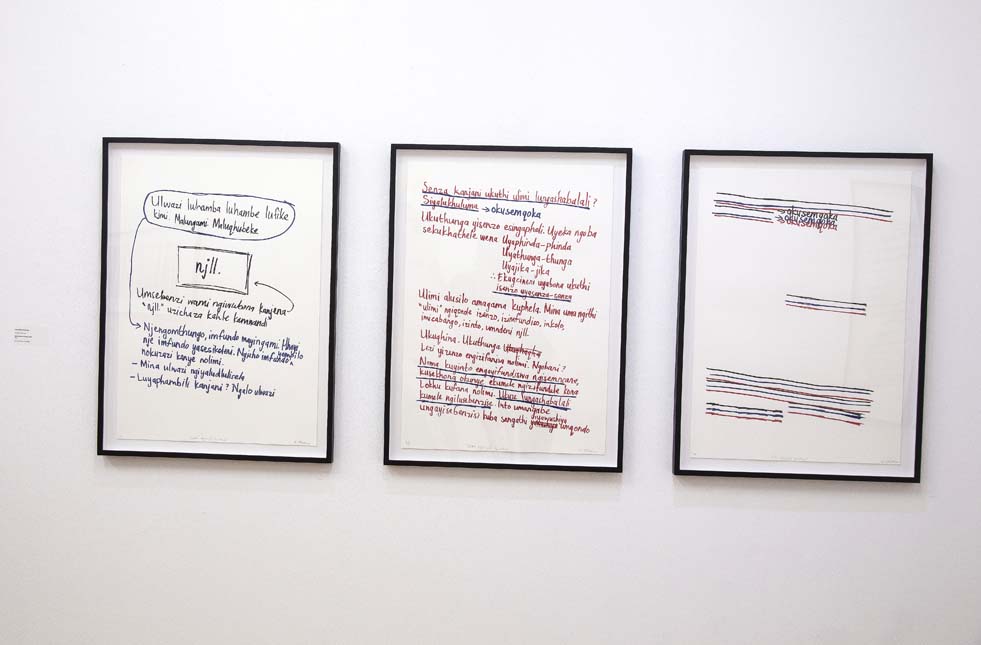 Ulwazi luhamba luhambe lufike
kimi. Malungami Maluqhubeke
njll.
Umsebenzi wami kanjena
"njll." uzichaza kahle kamnandi
Njengomthungo, imfundo mayingami. Hhayi
nje imfundo yasesikoleni. Ngisho imfundo
nokuzazi kanye nolimi.
- Mina ulwazi
- Luyaphambili kanjani? Ngelo lwazi
Senza kanjani ukuthi ulimi lungashabalali?
Siyalukhuluma → okusemqoka
Ukuthunga yisenzo esingapheli. Uyeka ngoba
sekukhathele wena Uyaphinda-phinda
Uyathunga-thunga
Uyajika-jika
∴ Ekugcineni uyabona ukuthi
isenzo uyasenza-senza
Ulimi akusilo amagama kuphela. Mina uma ngithi
"ulimi" ngiqonde izenzo, izinfundiso, inkolo,
imicabango, izindo, umndeni njll.
Ukughina. Ukuthunga
Lezi yizenzo engizifanisa nolimi. Ngobani?
Noma kuyinto engayifundiswa ngisemncane,
kusekhona okunye ekumele ngizifundele kona
Lokhu kufana nolimi. Ukuze lungashabalali
kumele ngilusebenzise. Into umangabe
ungayisebenzisi kuba sengathi umqondo
→ okusemqoka
→ okusemqoka
→ okusemqoka